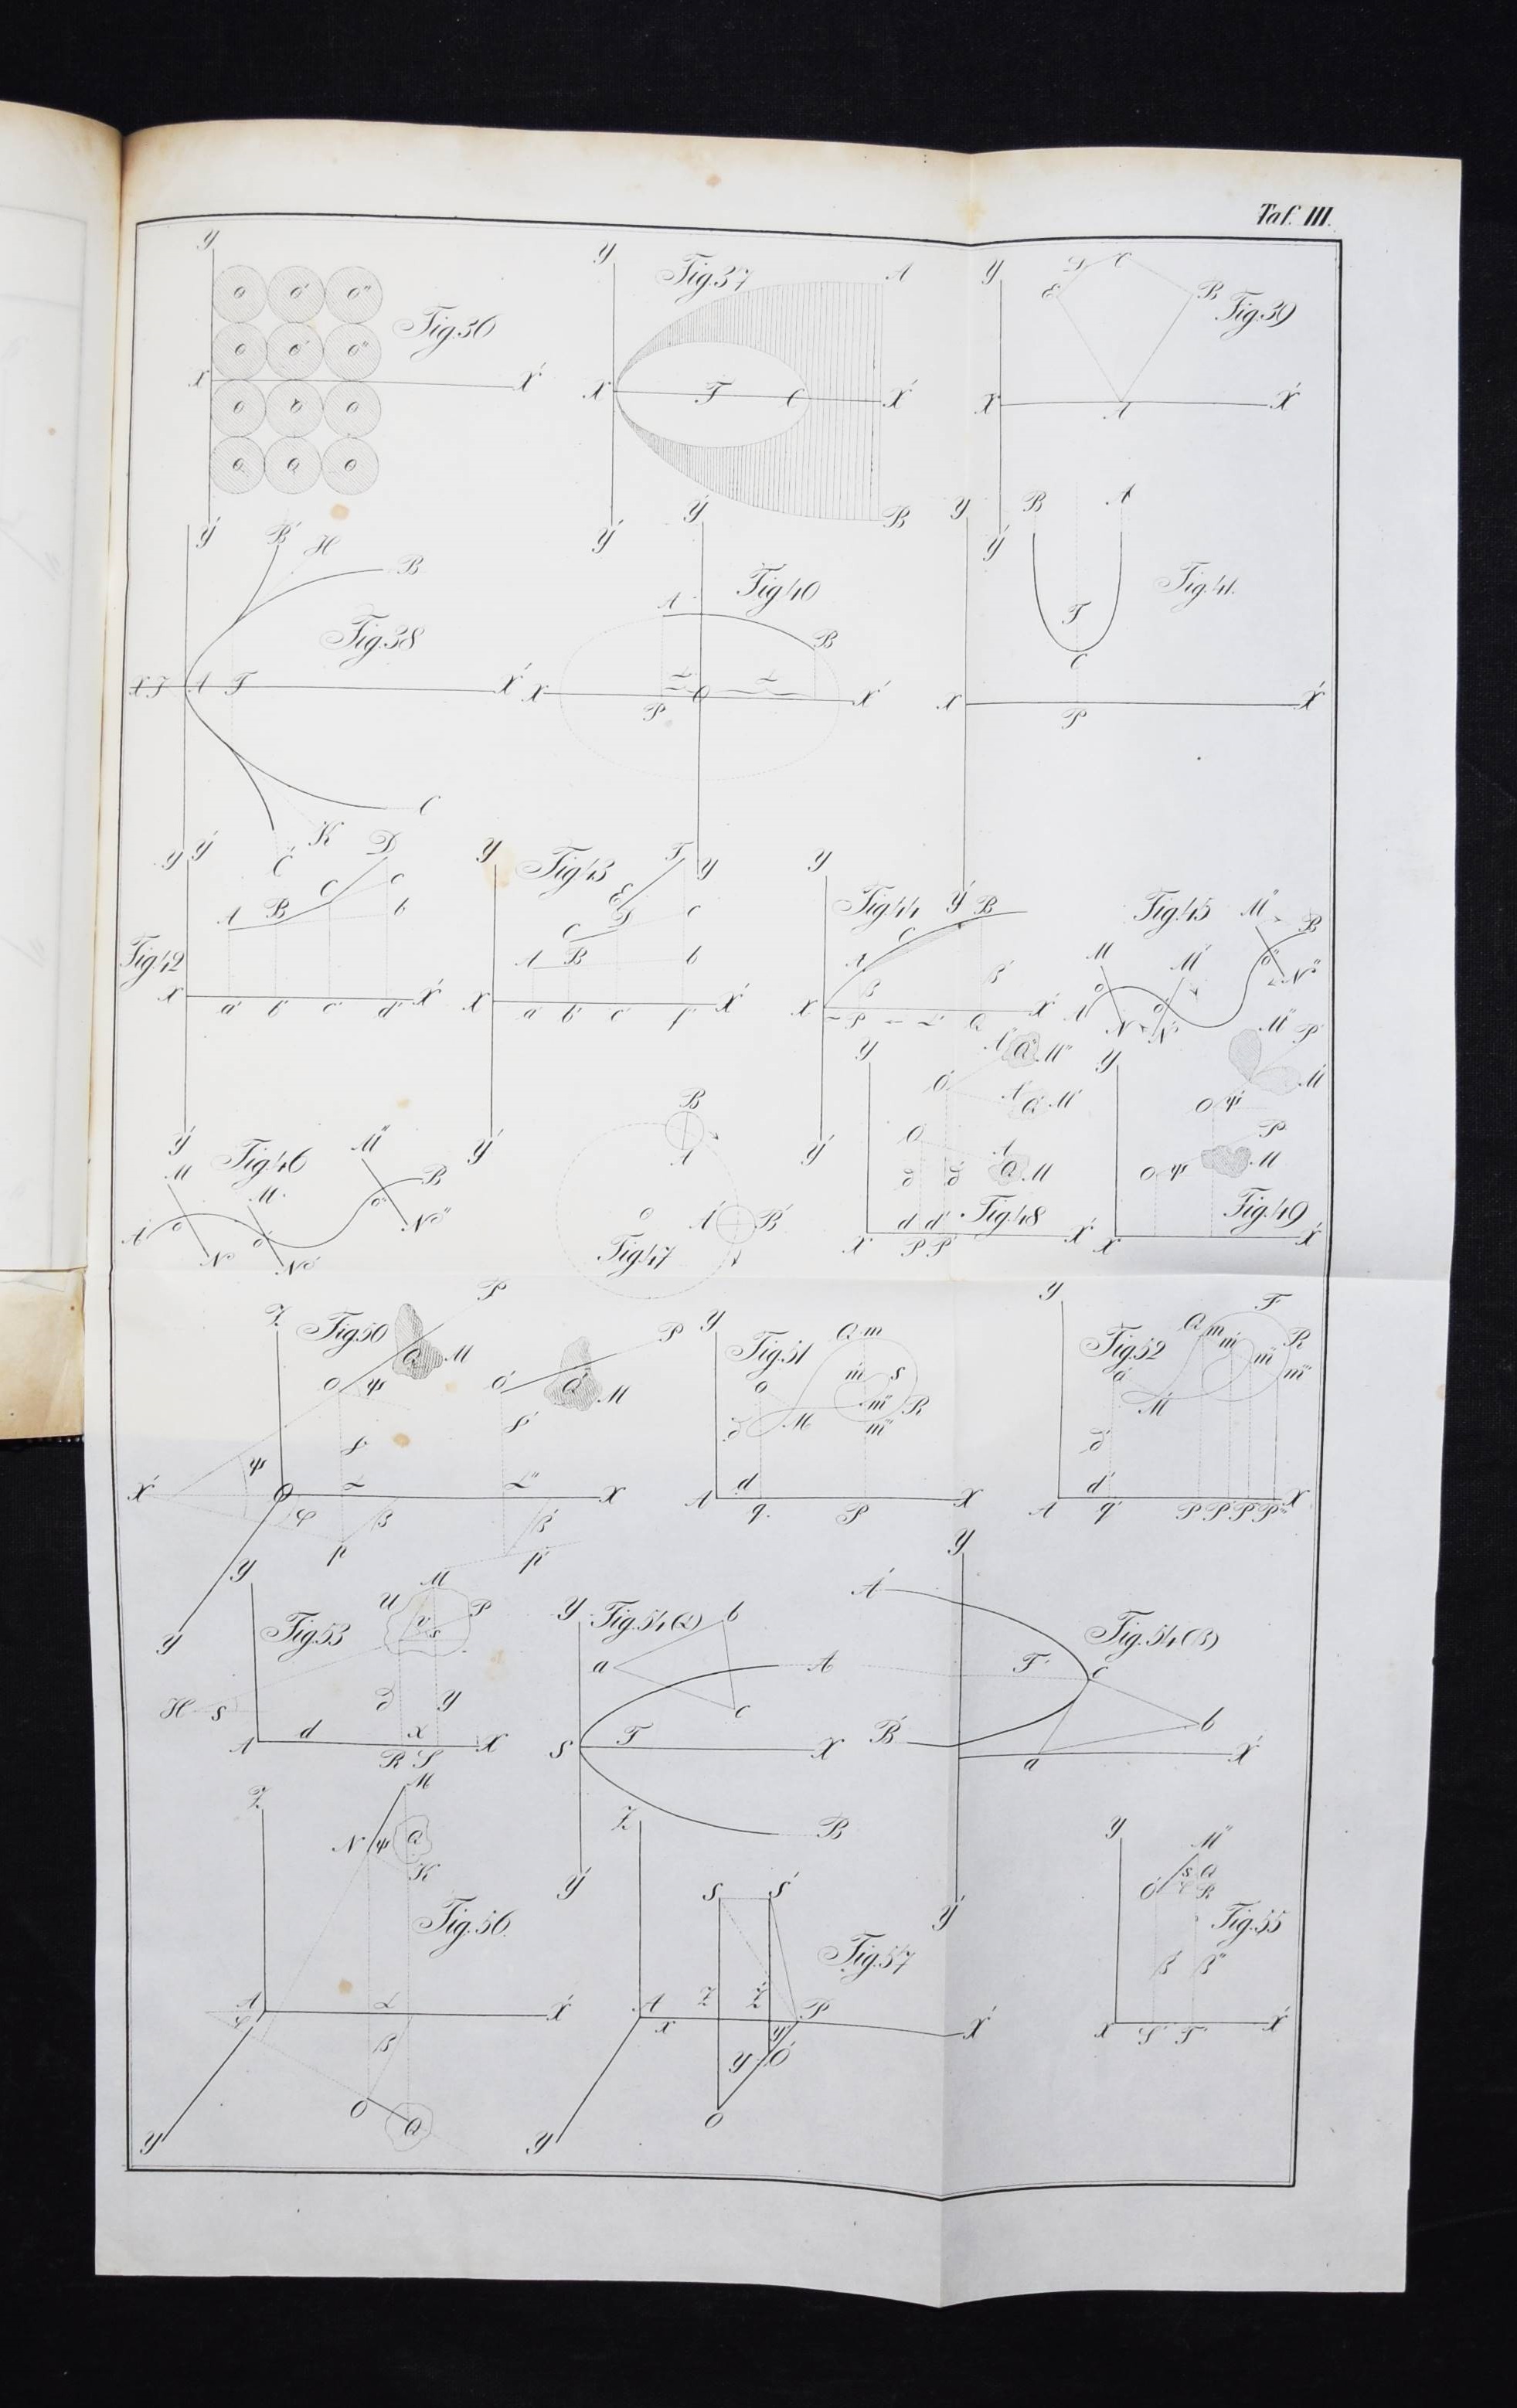 Taf. III.
y
o o' o''
Fig. 36
o o' o''
X X'
o o' o
o o o
y'
y
Fig. 37
A
X F C X'
B
y'
y
D C
E B
Fig. 39
X A X'
y'
B' H
B
Fig. 38
X J A F X'
C
K
C'
y'
y'
Fig. 40
A
B
X O X'
P
y
y
B A
Fig. 41.
F
C
X P X'
y'
y
Fig. 42
D
A B C c
b
X a' b' c' d' X'
y'
y
Fig. 43
F
E
C D c
A B b
X a' b' c' f' X'
y'
y
Fig. 44
B
C
A
β β'
X P Q X'
y'
Fig. 45
M M' M''
B
A
N N' N''
Fig. 46
M M' M''
B
A
N
B
A
o A' B'
Fig. 47
y
O' M''
M'
O A
Q M
δ δ'
d d'
Fig. 48
X P P' X'
y
M'' P'
M'
O' ψ'
P
O ψ M
Fig. 49
X X'
Z
Fig. 50
P P
Q M
O ψ
O' Q' M
ψ
X' O X
φ β β'
p p'
y
y
Fig. 51
Q m
o m' S
m'' R
M m'''
δ
d
A q P X
y
Fig. 52
F
Q m m' R
m'' m'''
M
δ'
d'
A q' P P' P'' P''' X
y
Fig. 53
M
U P
v s
δ y
H S
d x
A R S X
y
Fig. 54 (α)
b
a A
c
S F X
B
y'
y
A'
Fig. 54 (β)
F' c
b
B'
a X'
y'
Z
M
N ψ Q
K
Fig. 56
A α X'
φ
β
O Q
y
Z
S S'
Fig. 57
Z Z'
A x P X'
y'
y O'
O
y
y
M''
s Q
O' R
Fig. 55
β β''
X S' T' X'